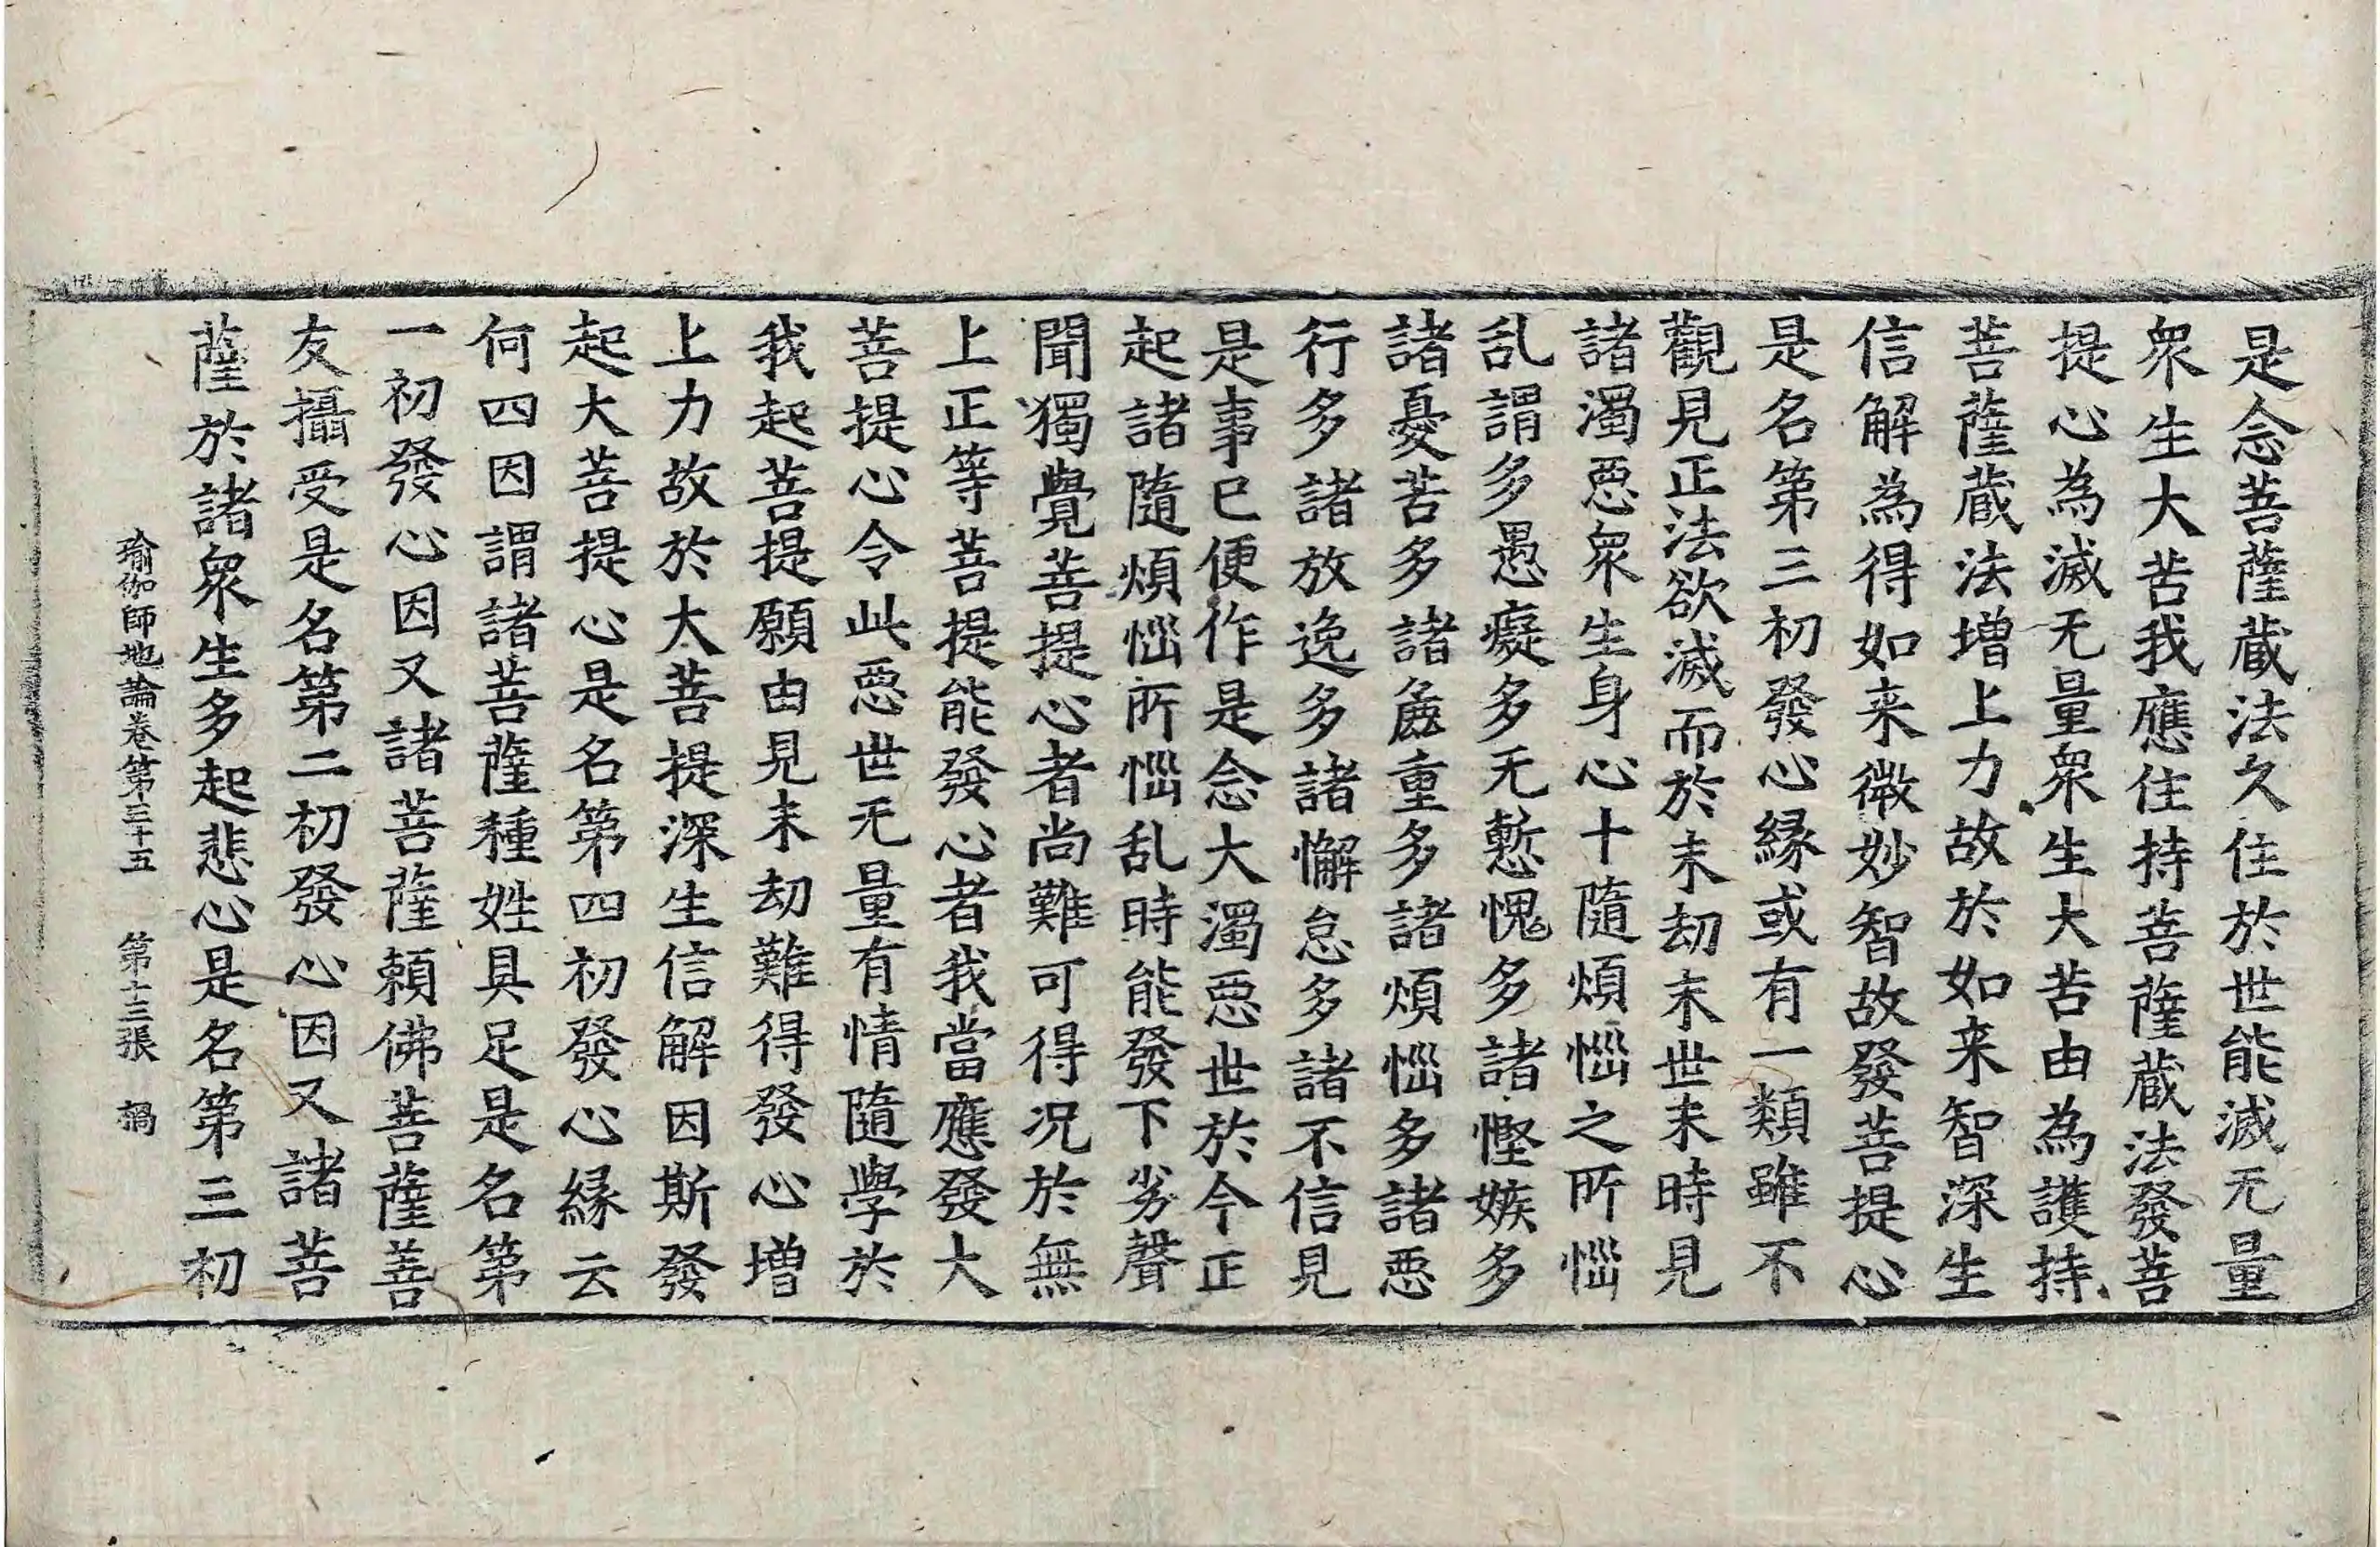 是念菩薩蔵法久住於世能滅无量
衆生大苦我應住持菩薩蔵法發菩
提心為滅无量衆生大苦由為護持
菩薩蔵法增上力故於如来智深生
信解為得如来微妙智故發菩提心
是名第三初發心縁或有一類雖不
觀見正法欲滅而於末劫末世末時見
諸濁惡衆生身心十隨煩惱之所惱
乱謂多愚癡多无慙愧多諸慳嫉多
諸憂苦多諸麁重多諸煩惱多諸惡
行多諸放逸多諸懈怠多諸不信見
是事已便作是念大濁惡世於今正
起諸隨煩惱所惱乱時能發下劣聲
聞獨覺菩提心者尚難可得况於無
上正等菩提能發心者我當應發大
菩提心令此惡世无量有情隨學於
我起菩提願由見末劫難得發心增
上力故於大菩提深生信解因斯發
起大菩提心是名第四初發心縁云
何四因謂諸菩薩種姓具足是名第
一初發心因又諸菩薩賴佛菩薩善
友攝受是名第二初發心因又諸菩
薩於諸衆生多起悲心是名第三初
瑜伽師地論卷第三十五 第十三張